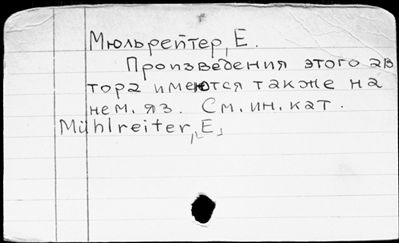 Мюльрейтер, Е.
Произведения этого ав
тора имеются также на
нем. яз. См. ин. кат.
Mühlreiter, E.